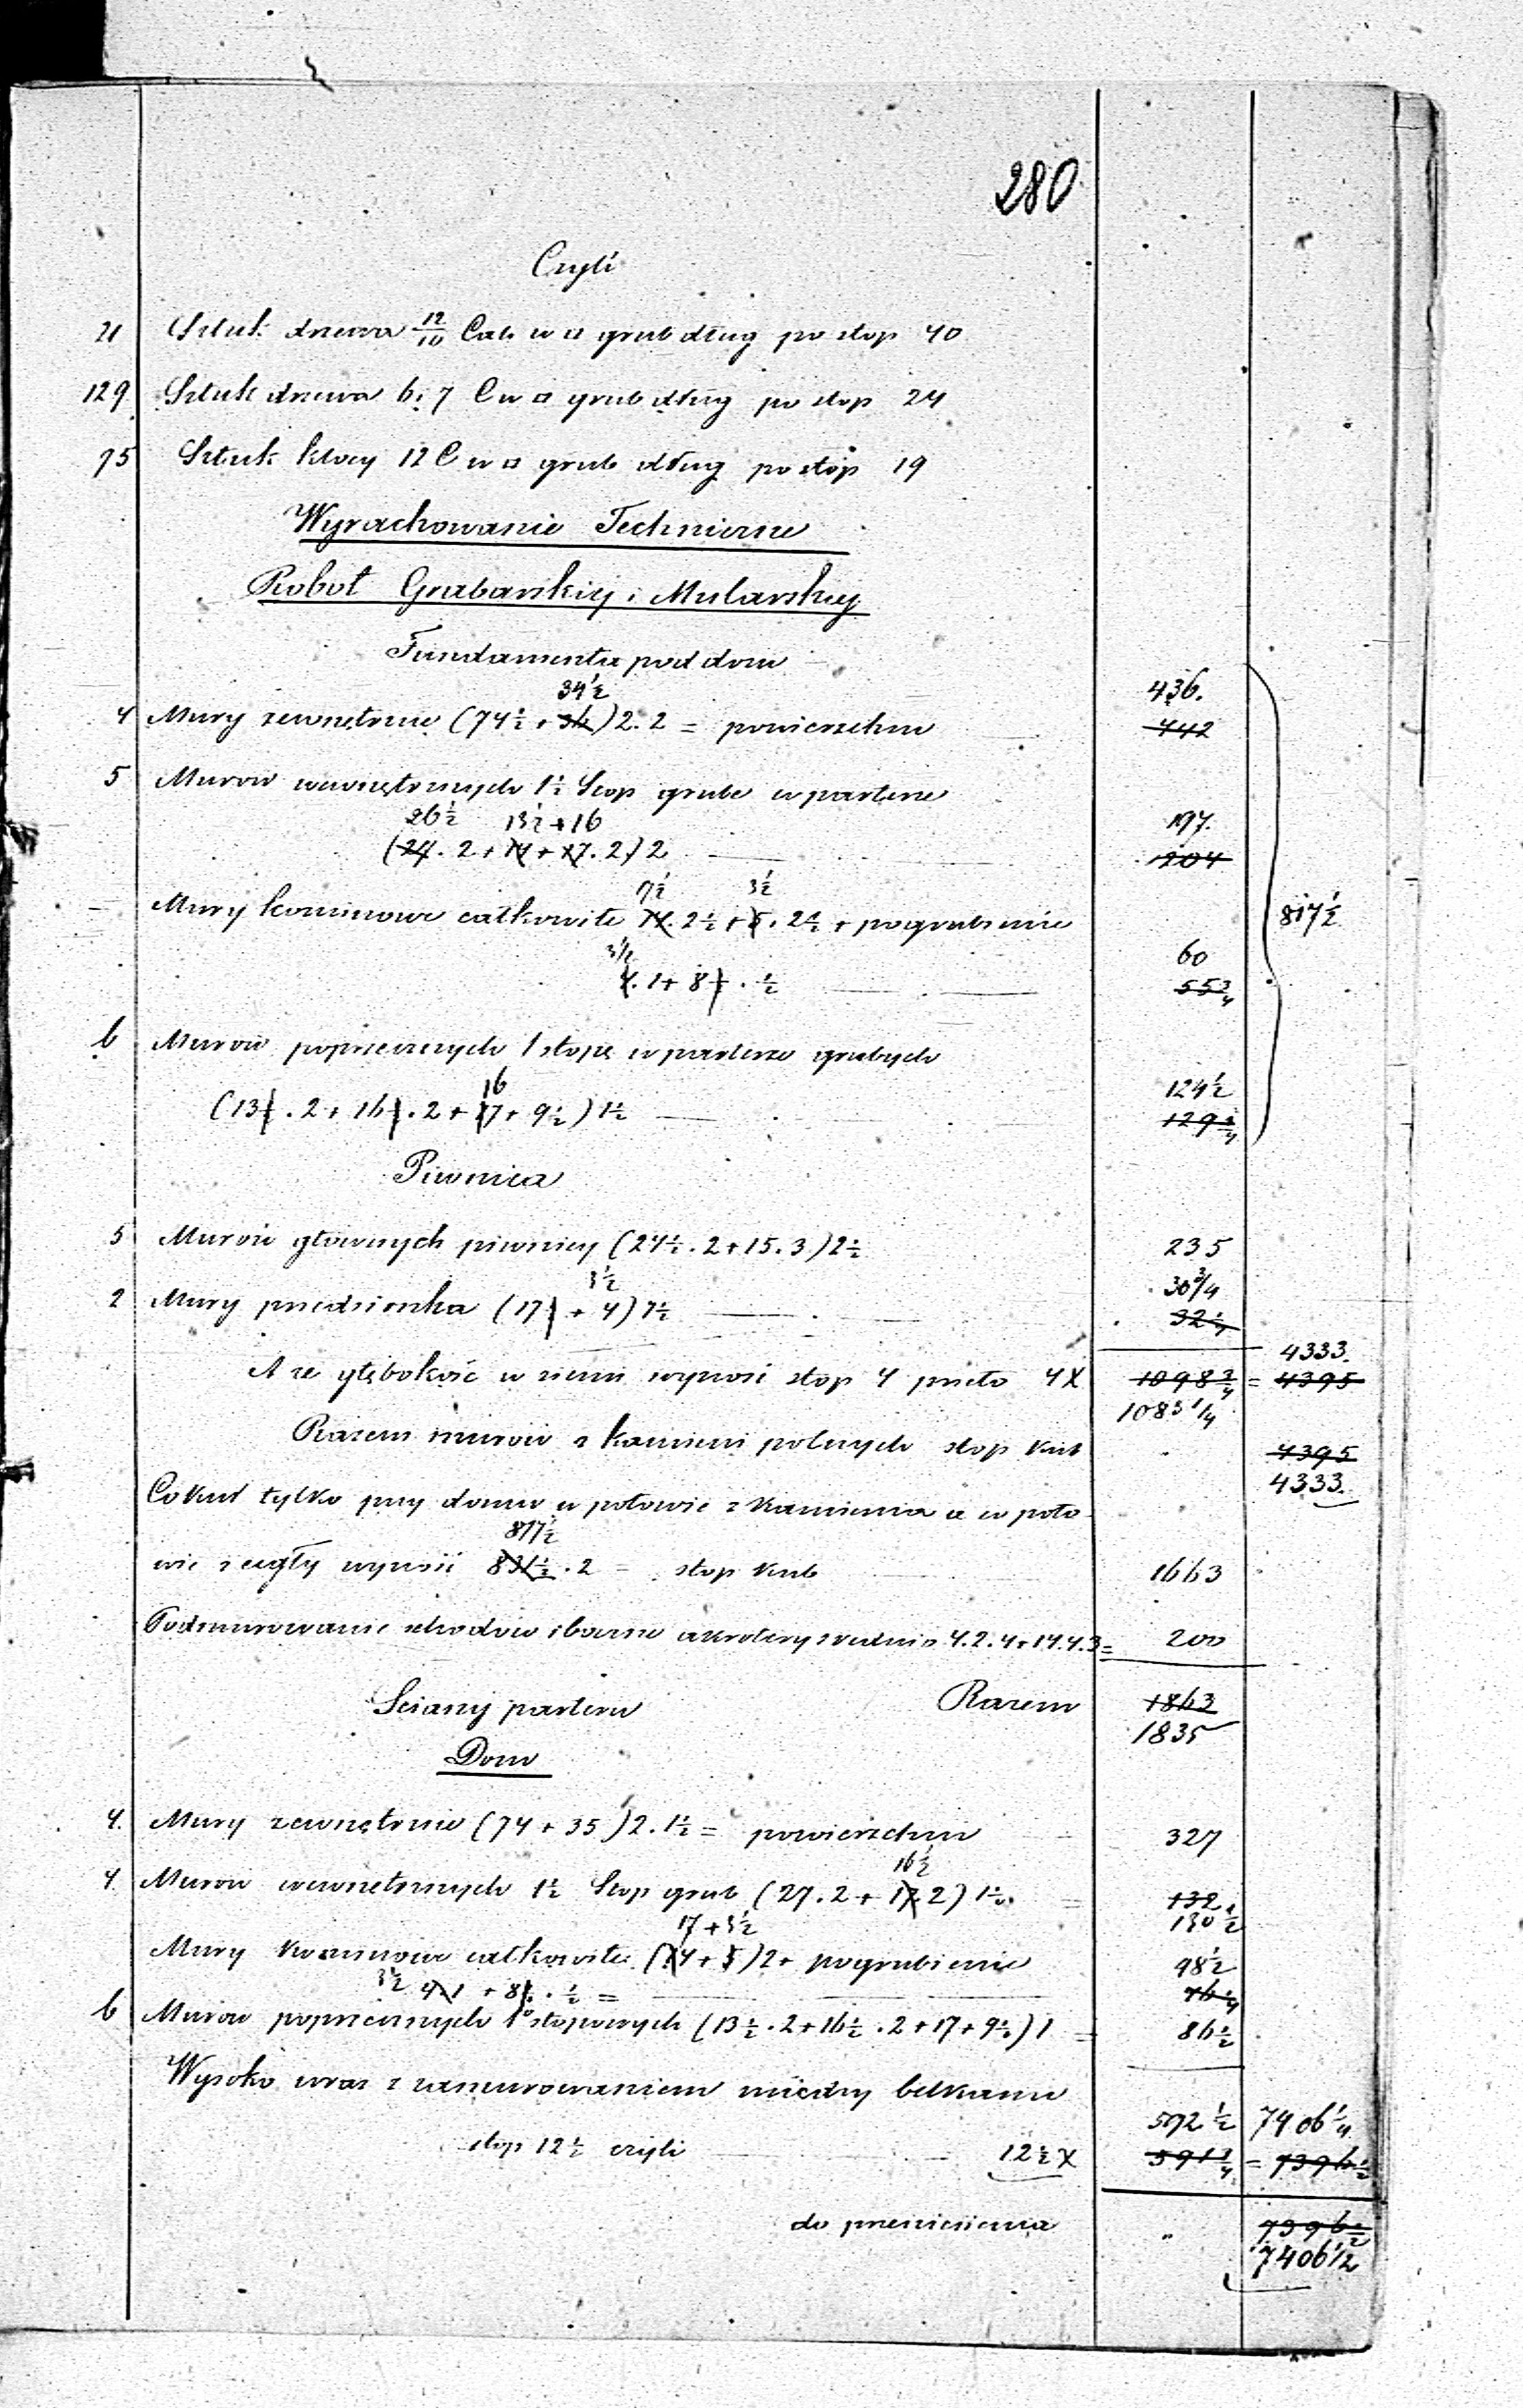 280
Czyli
21 Sztuk drzewa 12/10 Cali w □ grub dług po stop 40
129 Sztuk drzewa 6: 7 C w □ grub dług po stop 24
75 Sztuk klocy 12 C w □ grub dług po stop 19
Wyrachowanie Techniczne
Robot Grabarskiej i Mularskiej
Fundamenta pod dom
34½ 436.
4 Mury zewnętrzne (74½ + 36) 2. 2 = powierzchni 442
5 Murów wewnętrznych 1½ Stop grube w parterze
26½ 13½ + 16 197.
(27. 2 + 14 + 17. 2) 2 204
7½ 3½
Mury kominowe całkowite 14. 2½ + 5. 2½ + pogrubienie 817½
3½ 60
4. 1 + 8½. ½ 55¾
6 Murów poprzecznych 1 stopę w parterze grubych
16 124½
(13½. 2 + 16½. 2 + 17 + 9½) 1½ 129¾
Piwnica
5 Murów głównych piwnicy (24½. 2 + 15. 3) 2½ 235
3½ 30¾
2 Mury przedsionka (17½ + 4) 1½ 32¼
4333.
A że głębokość w ziemi wynosi stop 4 przeto 4X 1098¾ = 4395
1083¼
Razem murów z kamieni polnych stop kub 4395
4333.
Cokuł tylko przy domu w połowie z kamienia a w poło-
817½
wie z cegły wynosi 831½. 2 = stop kub 1663
Podmurowanie schodów i boczne akrotery średnio 4. 2. 4 + 14. 4. 3 = 200
Sciany parteru Razem 1863
1835
Dom
4. Mury zewnętrzne (74 + 35) 2. 1½ = powierzchni 327
16½
4. Murów wewnętrznych 1½ Stop grub (27. 2 + 17. 2) 1½. = 132
17 + 3½ 130½
Mury kominowe całkowite (14 + 5) 2 + pogrubienie 48½
3½ 4. 1 + 8½. ½ = 46¼
6 Murów poprzecznych 1º stopowych (13½. 2 + 16½. 2 + 17 + 9½) 1 = 86½
Wysoko wraz z zamurowaniem między belkami
592½ 7406¼
stop 12½ czyli 12½ X 591¾ = 7396½
do przeniesienia " 7396½
7406½